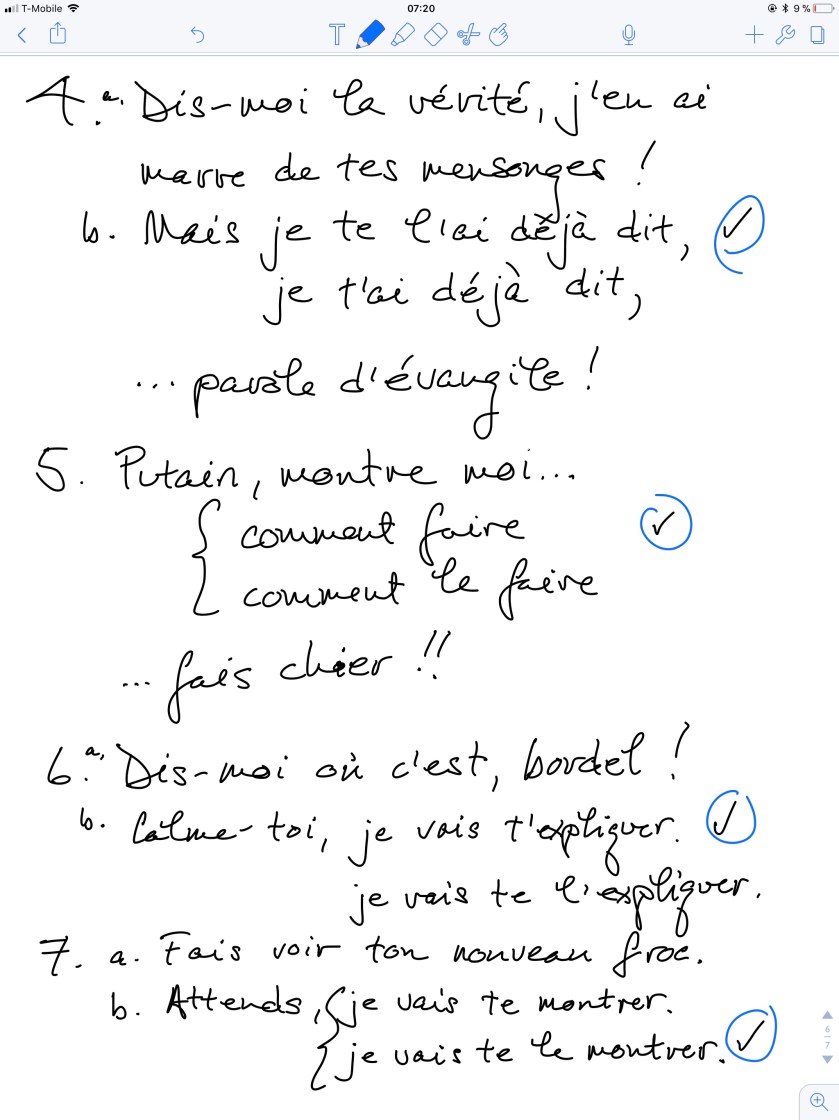 T-Mobile 07:20 9 %
T
4. a. Dis-moi la vérité, j'en ai
marre de tes mensonges !
b. Mais je te l'ai déjà dit, ✓
je t'ai déjà dit,
... parole d'évangile !
5. Putain, montre moi...
comment faire ✓
comment le faire
... fais chier !!
6. a. Dis-moi où c'est, bordel !
b. Calme-toi, je vais t'expliquer. ✓
je vais te l'expliquer.
7. a. Fais voir ton nouveau froc.
b. Attends, je vais te montrer.
je vais te le montrer. ✓
6
7